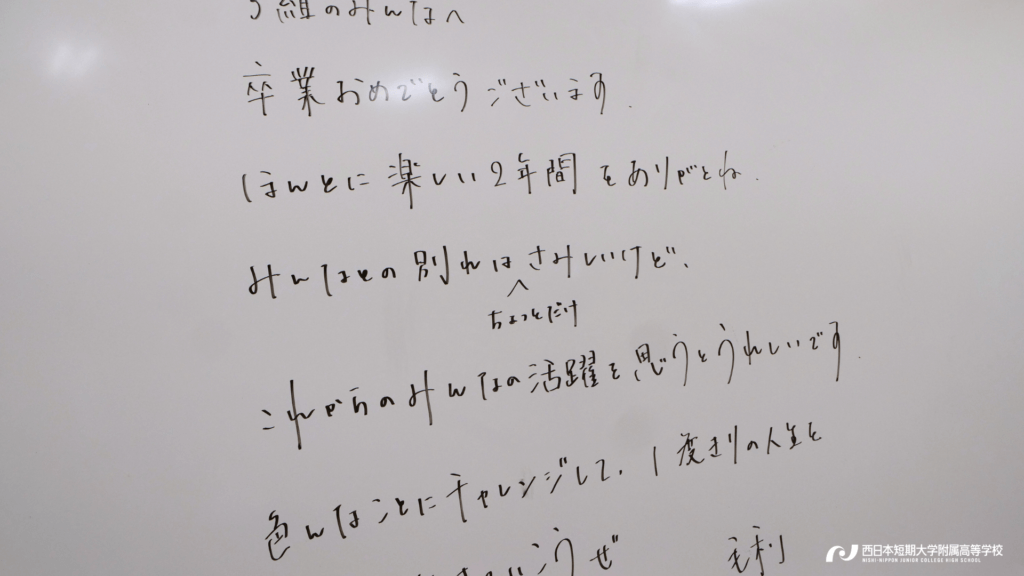 組のみんなへ
卒業おめでとうございます.
ほんとに楽しい2年間をありがとね.
みんなとの別れはさみしいけど、
ちょっとだけ
これからのみんなの活躍を思うとうれしいです.
色んなことにチャレンジして、1度きりの人生を
こうぜ
毛利
西日本短期大学附属高等学校
NISHI-NIPPON JUNIOR COLLEGE HIGH SCHOOL